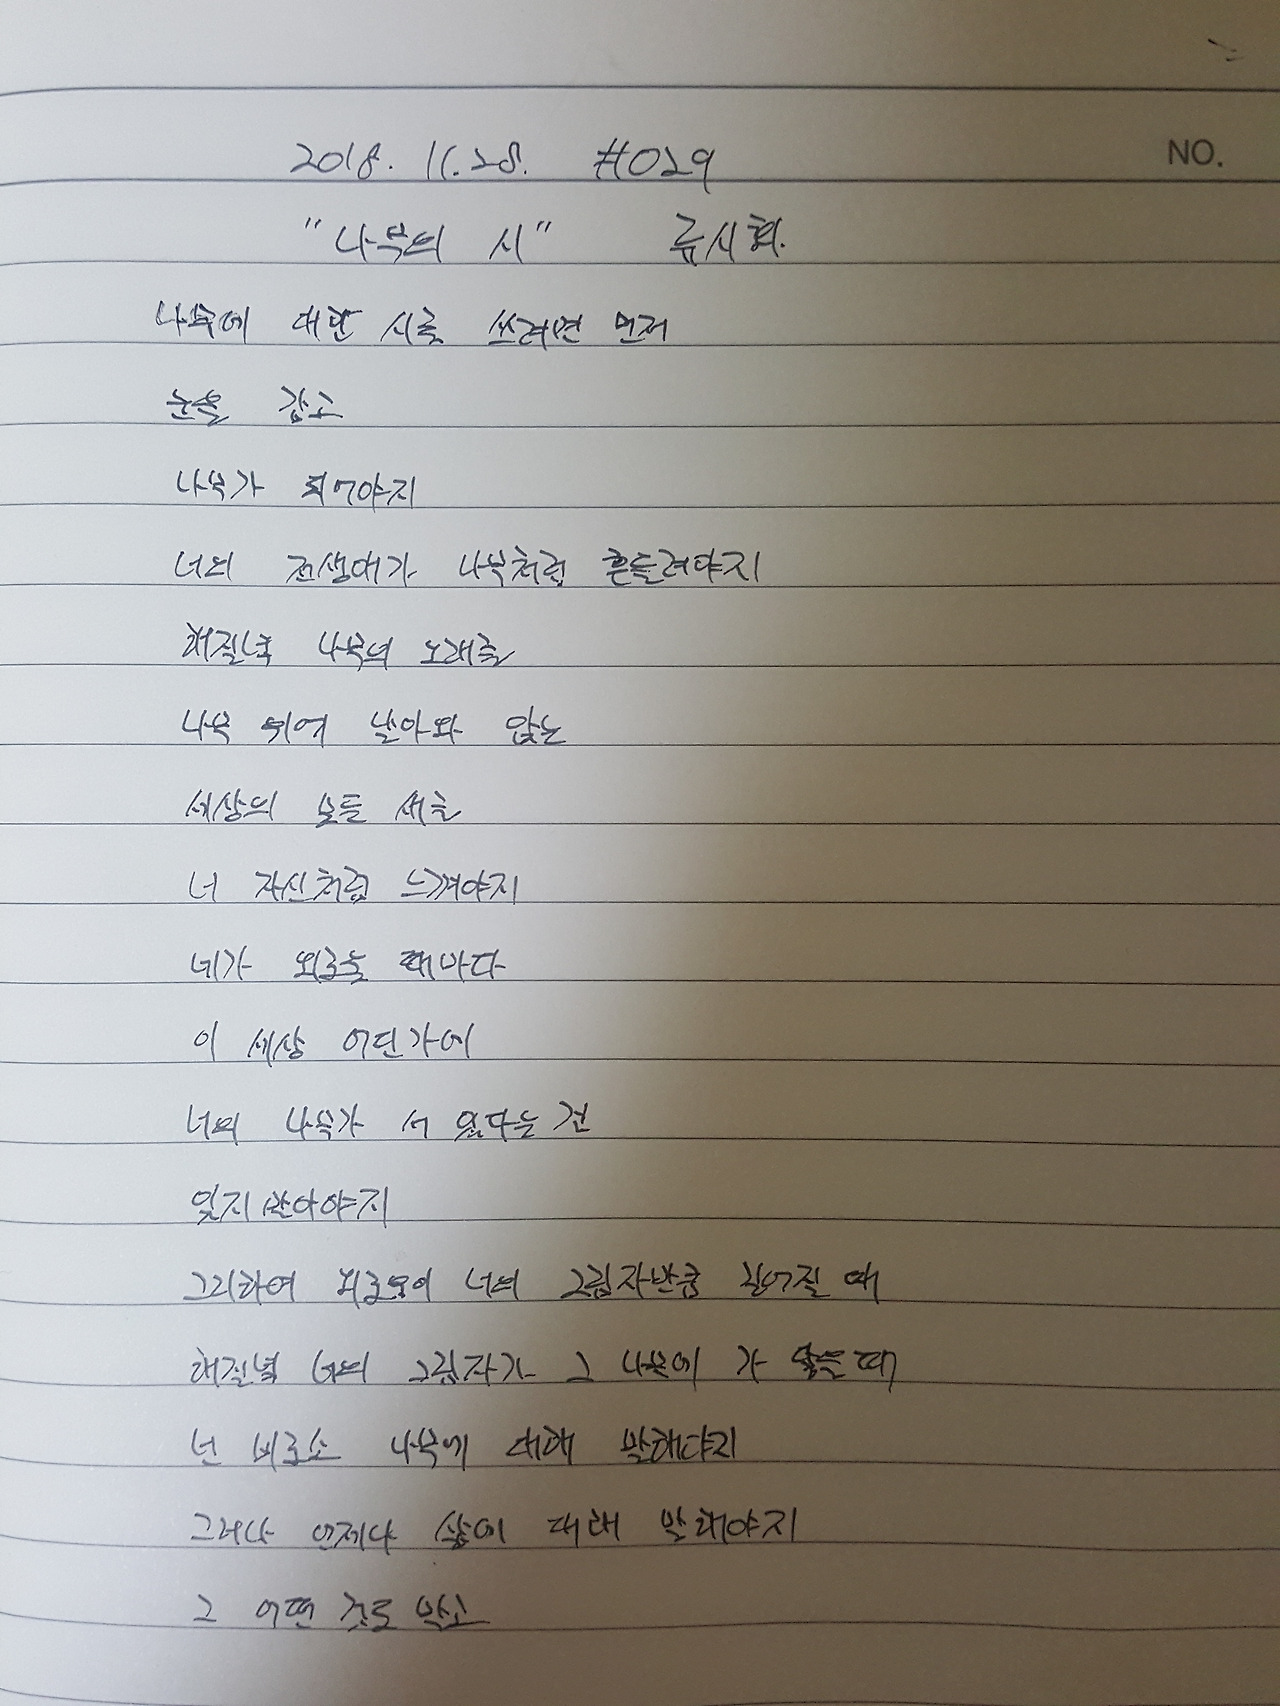 2018. 11. 28. #029
NO.
"나무의 시" 류시화.
나무에 대한 시를 쓰려면 먼저
눈을 감고
나무가 되어야지
너의 전생애가 나무처럼 흔들려야지
해질녘 나무의 노래를
나무 위에 날아와 앉는
세상의 모든 새를
너 자신처럼 느껴야지
네가 외로울 때마다
이 세상 어딘가에
너의 나무가 서 있다는 건
잊지 말아야지
그리하여 외로움이 너의 그림자만큼 길어질 때
해질녘 너의 그림자가 그 나무에 가 닿을 때
넌 비로소 나무에 대해 말해야지
그러나 언제나 삶에 대해 말해야지
그 어떤 것도 말고